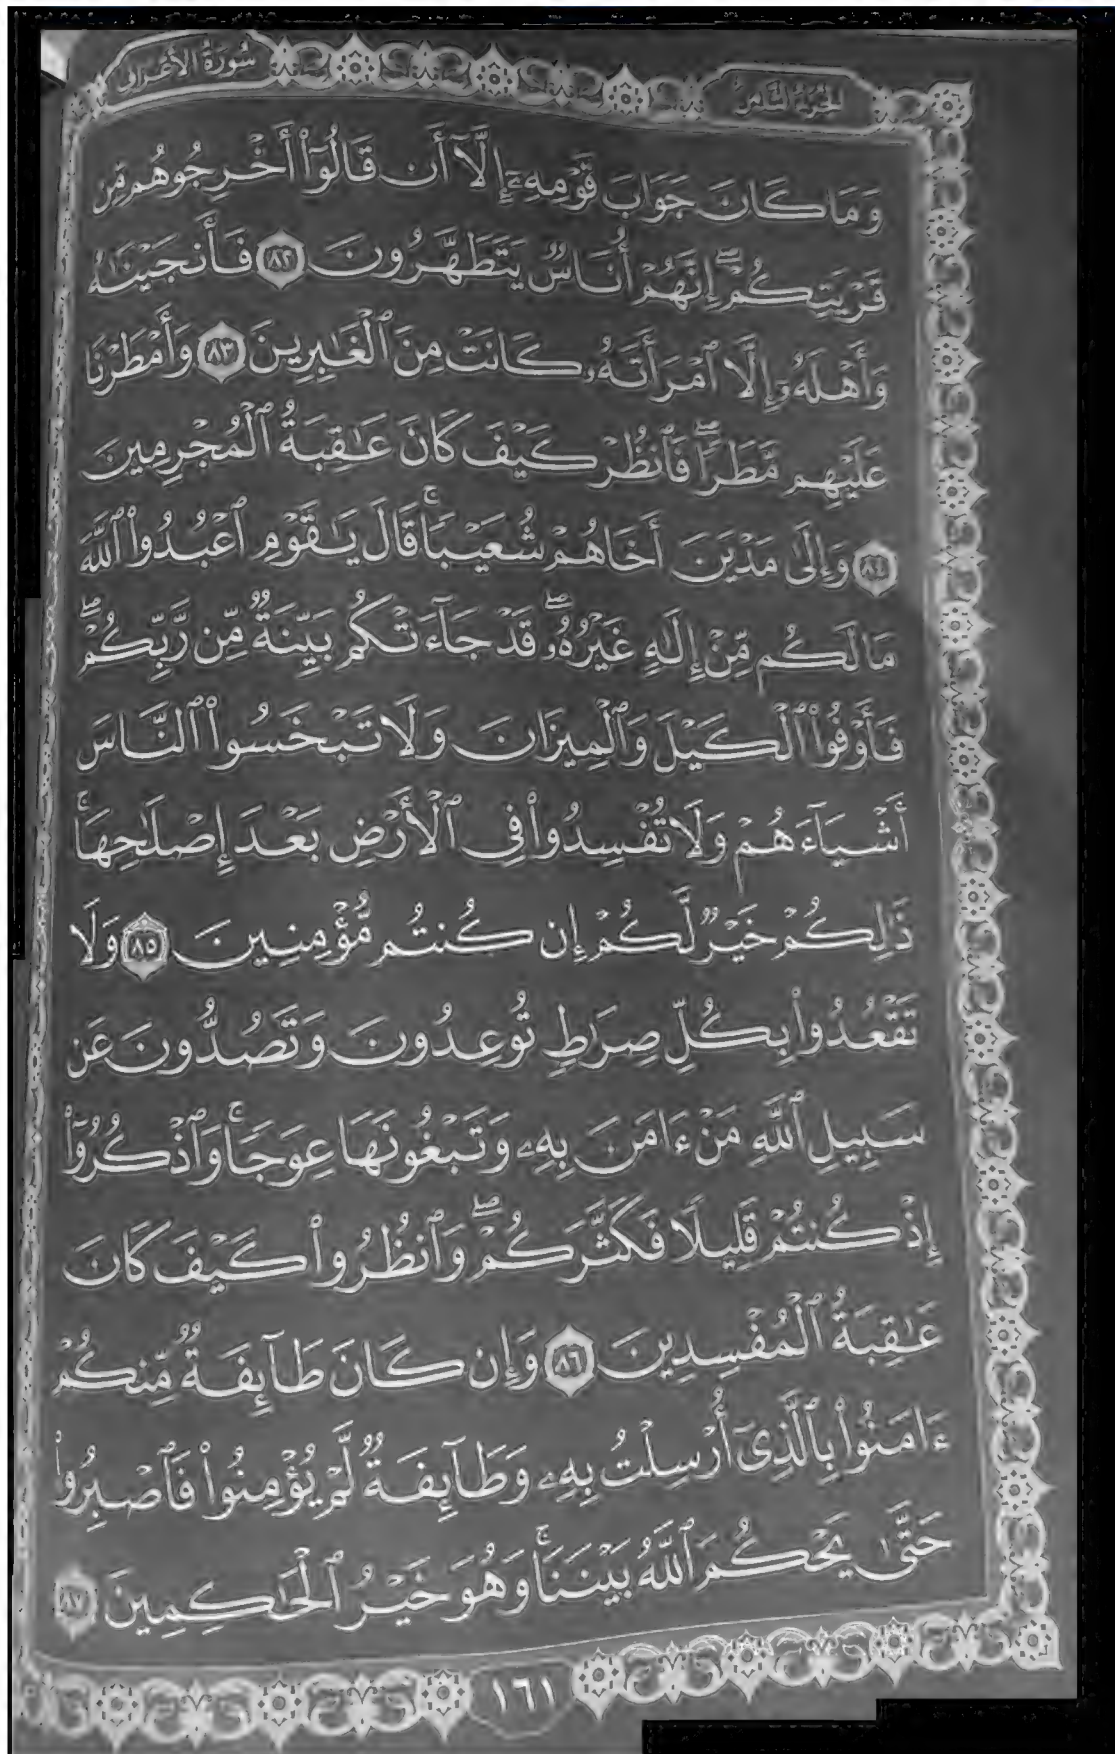 الجزء الثامن
سورة الأعراف
وَمَا كَانَ جَوَابَ قَوْمِهِۦٓ إِلَّآ أَن قَالُوٓا۟ أَخْرِجُوهُم مِّن
قَرْيَتِكُمْ ۖ إِنَّهُمْ أُنَاسٌ يَتَطَهَّرُونَ ٨٢ فَأَنجَيْنَـٰهُ
وَأَهْلَهُۥٓ إِلَّا ٱمْرَأَتَهُۥ كَانَتْ مِنَ ٱلْغَـٰبِرِينَ ٨٣ وَأَمْطَرْنَا
عَلَيْهِم مَّطَرًا ۖ فَٱنظُرْ كَيْفَ كَانَ عَـٰقِبَةُ ٱلْمُجْرِمِينَ
٨٤ وَإِلَىٰ مَدْيَنَ أَخَاهُمْ شُعَيْبًا ۚ قَالَ يَـٰقَوْمِ ٱعْبُدُوا۟ ٱللَّهَ
مَا لَكُم مِّنْ إِلَـٰهٍ غَيْرُهُۥ ۖ قَدْ جَآءَتْكُم بَيِّنَةٌ مِّن رَّبِّكُمْ ۖ
فَأَوْفُوا۟ ٱلْكَيْلَ وَٱلْمِيزَانَ وَلَا تَبْخَسُوا۟ ٱلنَّاسَ
أَشْيَآءَهُمْ وَلَا تُفْسِدُوا۟ فِى ٱلْأَرْضِ بَعْدَ إِصْلَـٰحِهَا ۚ
ذَٰلِكُمْ خَيْرٌ لَّكُمْ إِن كُنتُم مُّؤْمِنِينَ ٨٥ وَلَا
تَقْعُدُوا۟ بِكُلِّ صِرَٰطٍ تُوعِدُونَ وَتَصُدُّونَ عَن
سَبِيلِ ٱللَّهِ مَنْ ءَامَنَ بِهِۦ وَتَبْغُونَهَا عِوَجًا ۚ وَٱذْكُرُوٓا۟
إِذْ كُنتُمْ قَلِيلًا فَكَثَّرَكُمْ ۖ وَٱنظُرُوا۟ كَيْفَ كَانَ
عَـٰقِبَةُ ٱلْمُفْسِدِينَ ٨٦ وَإِن كَانَ طَآئِفَةٌ مِّنكُمْ
ءَامَنُوا۟ بِٱلَّذِىٓ أُرْسِلْتُ بِهِۦ وَطَآئِفَةٌ لَّمْ يُؤْمِنُوا۟ فَٱصْبِرُوا۟
حَتَّىٰ يَحْكُمَ ٱللَّهُ بَيْنَنَا ۚ وَهُوَ خَيْرُ ٱلْحَـٰكِمِينَ ٨٧
١٦١